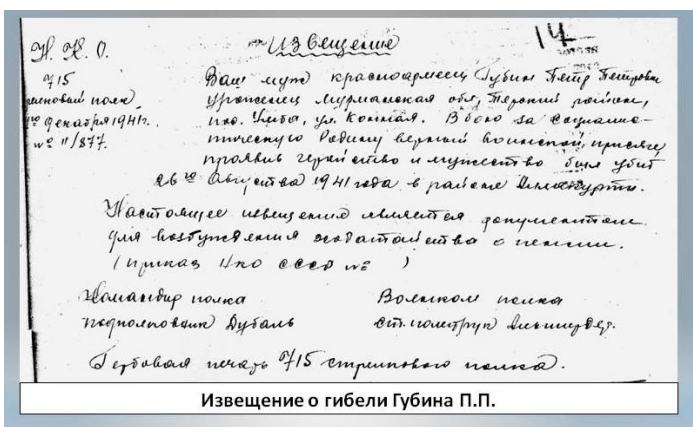 Извещение
14
Н. К. О.
715
полк
декабря 1941г.
№ 11/877.
Ваш муж красноармеец Губин Пётр Петрович
уроженец Мурманская обл, Терский район,
пос. Умба, ул. Конная. В бою за социали-
стическую Родину верный воинской присяге,
проявив геройство и мужество был убит
26го августа 1941 года в районе
Настоящее извещение является документом
для возбуждения ходатайства о пенсии.
(приказ НКО СССР № )
Командир полка
Военком полка
подполковник Дубаль
ст. политрук
Гербовая печать 715 стрелкового полка.
Извещение о гибели Губина П.П.